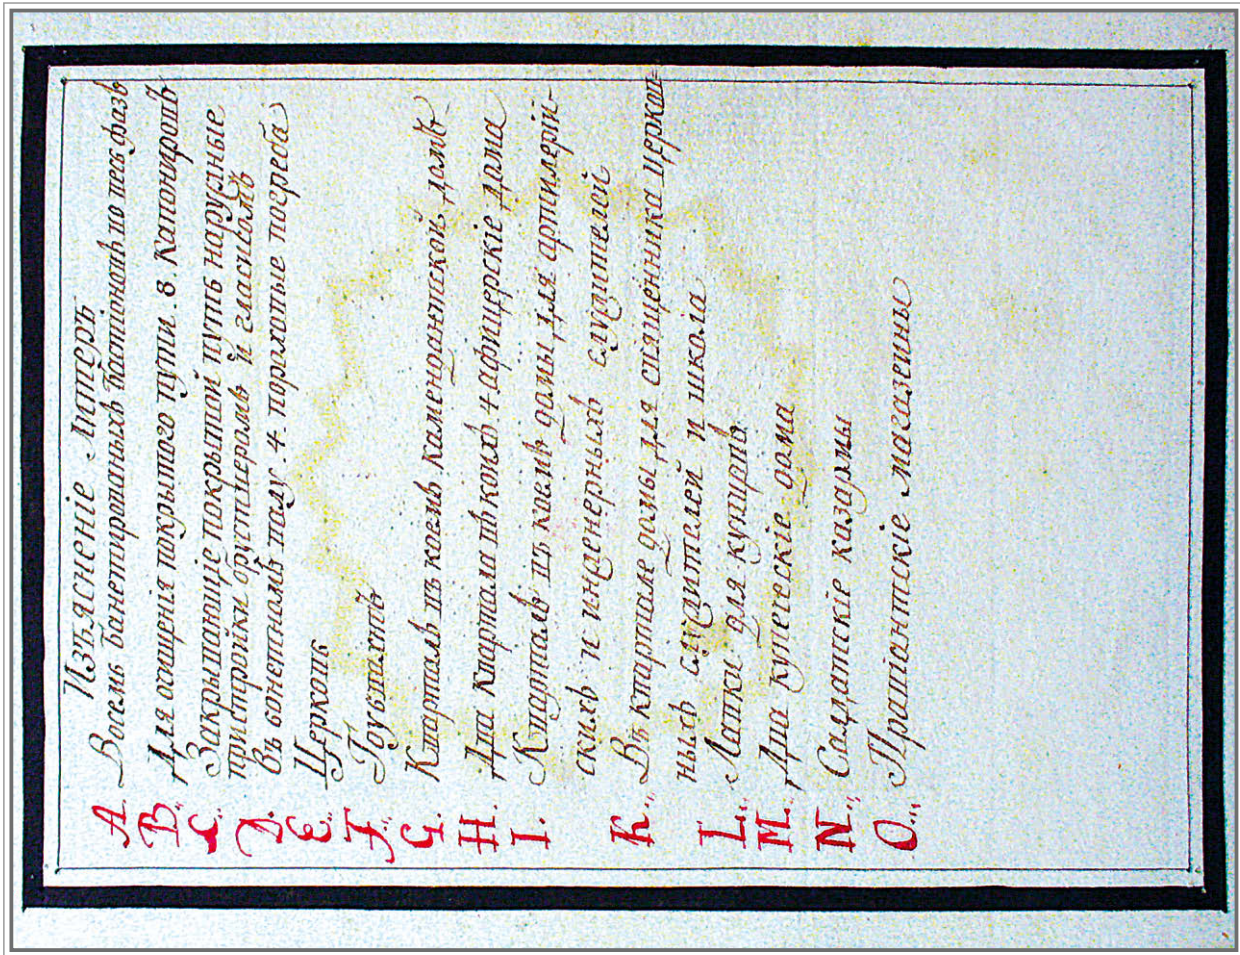 Изъясненіе Литеръ
A. Восемь банетированыхъ бастионовъ по песк фазъ
B. Для защищенія покрытого пути .8. капонировъ
C. Закрывающіе покрытой путь наружные
пристройки бруствером и гласисомъ
D. Въ сонетномъ валу .4. пороховые погреба
E. Церковь
F. Гоубвахтъ
G. Кварталъ въ коемъ камендантской домъ
H. Два квартала въ коихъ 4 афицерскіе дома
I. Кварталъ въ коемъ домы для артилерій-
скихъ и инженерныхъ служителей
K. Въ квартале домы для священника церков=
ныхъ служителей и школа
L. Лавки для купцовъ
M. Два купеческіе дома
N. Салдатскіе казармы
O. Правіантскіе магазейны